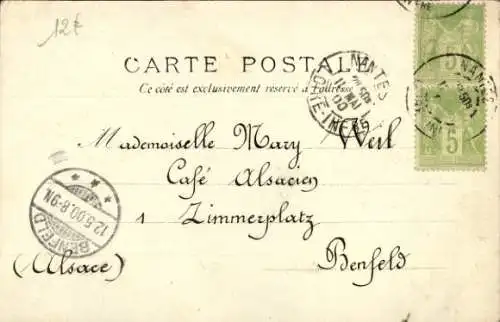 12€
CARTE POSTALE
Ce côté est exclusivement réservé à l'adresse
NANTES
11 MAI
00
LOIRE-INFRE
5
NANTES
5
Mademoiselle Mary Weil
Café Alsacien
1 Zimmerplatz
Benfeld
(Alsace)
BENFELD
12.5.00.8-9N.